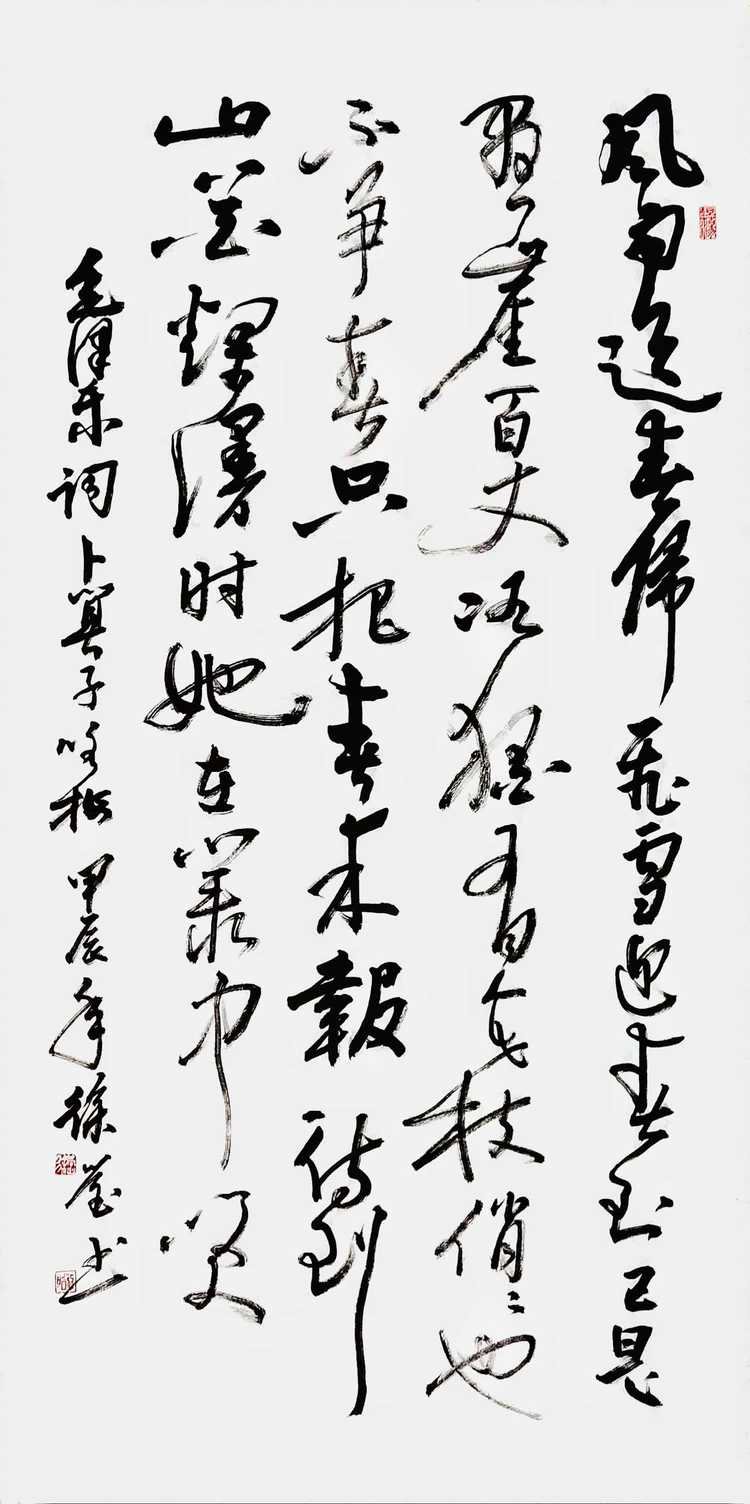 风雨送春归飞雪迎春到已是
悬崖百丈冰犹有花枝俏〻也
不争春只把春来報待到
山花烂漫时她在叢中咲
毛泽东词卜算子咏梅 甲辰年徐莹书